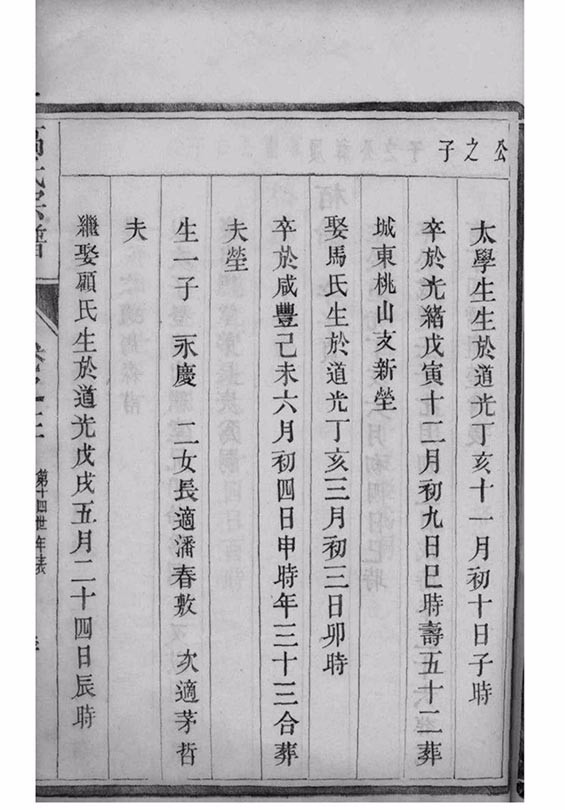 公之子
太學生生於道光丁亥十一月初十日子時
卒於光緒戊寅十二月初九日巳時壽五十二葬
城東桃山支新塋
娶馬氏生於道光丁亥三月初三日卯時
卒於咸豐己未六月初四日申時年三十三合葬
夫塋
生一子 永慶 二女長適潘春敷 次適茅哲
夫
繼娶顧氏生於道光戊戌五月二十四日辰時
氏宗譜
第十四世年表